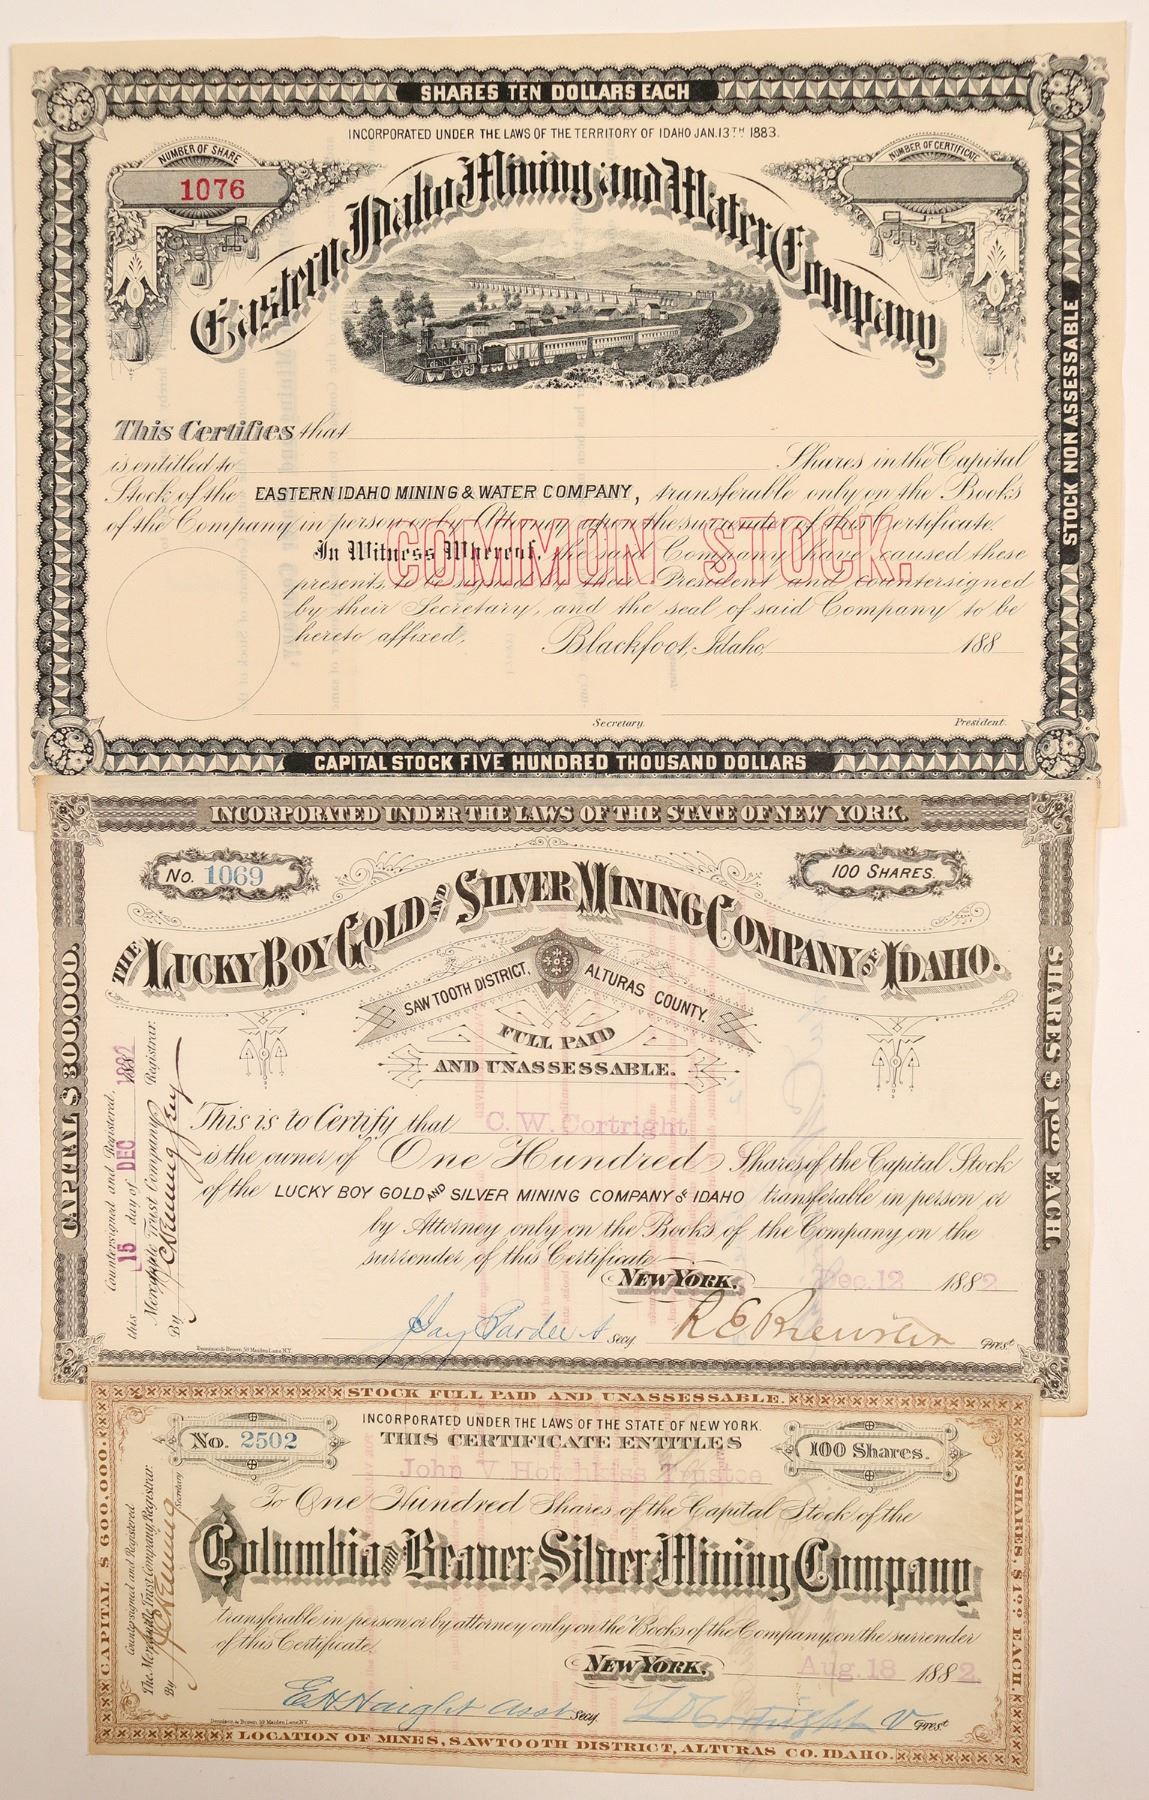 SHARES TEN DOLLARS EACH
INCORPORATED UNDER THE LAWS OF THE TERRITORY OF IDAHO JAN. 13TH 1883.
NUMBER OF SHARE
1076
NUMBER OF CERTIFICATE
Eastern Idaho Mining and Water Company
STOCK NON ASSESSABLE
This Certifies that
is entitled to Shares in the Capital
Stock of the EASTERN IDAHO MINING & WATER COMPANY, transferable only on the Books
of the Company in person or by Attorney upon the surrender of this Certificate.
COMMON STOCK.
In Witness Whereof, the said Company have caused these
presents to be signed by their President and countersigned
by their Secretary, and the seal of said Company to be
hereto affixed, Blackfoot, Idaho, 188
Secretary. President.
CAPITAL STOCK FIVE HUNDRED THOUSAND DOLLARS
INCORPORATED UNDER THE LAWS OF THE STATE OF NEW YORK.
No. 1069
100 SHARES.
THE LUCKY BOY GOLD AND SILVER MINING COMPANY OF IDAHO.
SAW TOOTH DISTRICT, ALTURAS COUNTY.
FULL PAID
AND UNASSESSABLE.
CAPITAL $300,000.
SHARES $1.00 EACH.
Countersigned and Registered,
this 15 day of DEC 1882
Mercantile Trust Company Registrar.
By
This is to Certify that C. W. Cortright
is the owner of One Hundred Shares of the Capital Stock
of the LUCKY BOY GOLD AND SILVER MINING COMPANY OF IDAHO transferable in person or
by Attorney only on the Books of the Company on the
surrender of this Certificate
NEW YORK. Dec. 12 1882
Secy. R E Brewster Prest.
Dennison & Brown, 59 Maiden Lane, N.Y.
STOCK FULL PAID AND UNASSESSABLE.
INCORPORATED UNDER THE LAWS OF THE STATE OF NEW YORK.
No. 2502
THIS CERTIFICATE ENTITLES
100 Shares.
John V Hotchkiss Trustee
To One Hundred Shares of the Capital Stock of the
Columbia and Beaver Silver Mining Company
transferable in person or by attorney only on the Books of the Company, on the surrender
of this Certificate
NEW YORK. Aug. 18 1882.
E H Haight Asst Secy. Cortright V Prest
CAPITAL $600,000.
SHARES, $1.00 EACH.
Countersigned and Registered
The Mercantile Trust Company, Registrar.
By Secretary
Dennison & Brown 59 Maiden Lane N.Y.
LOCATION OF MINES, SAWTOOTH DISTRICT, ALTURAS CO. IDAHO.